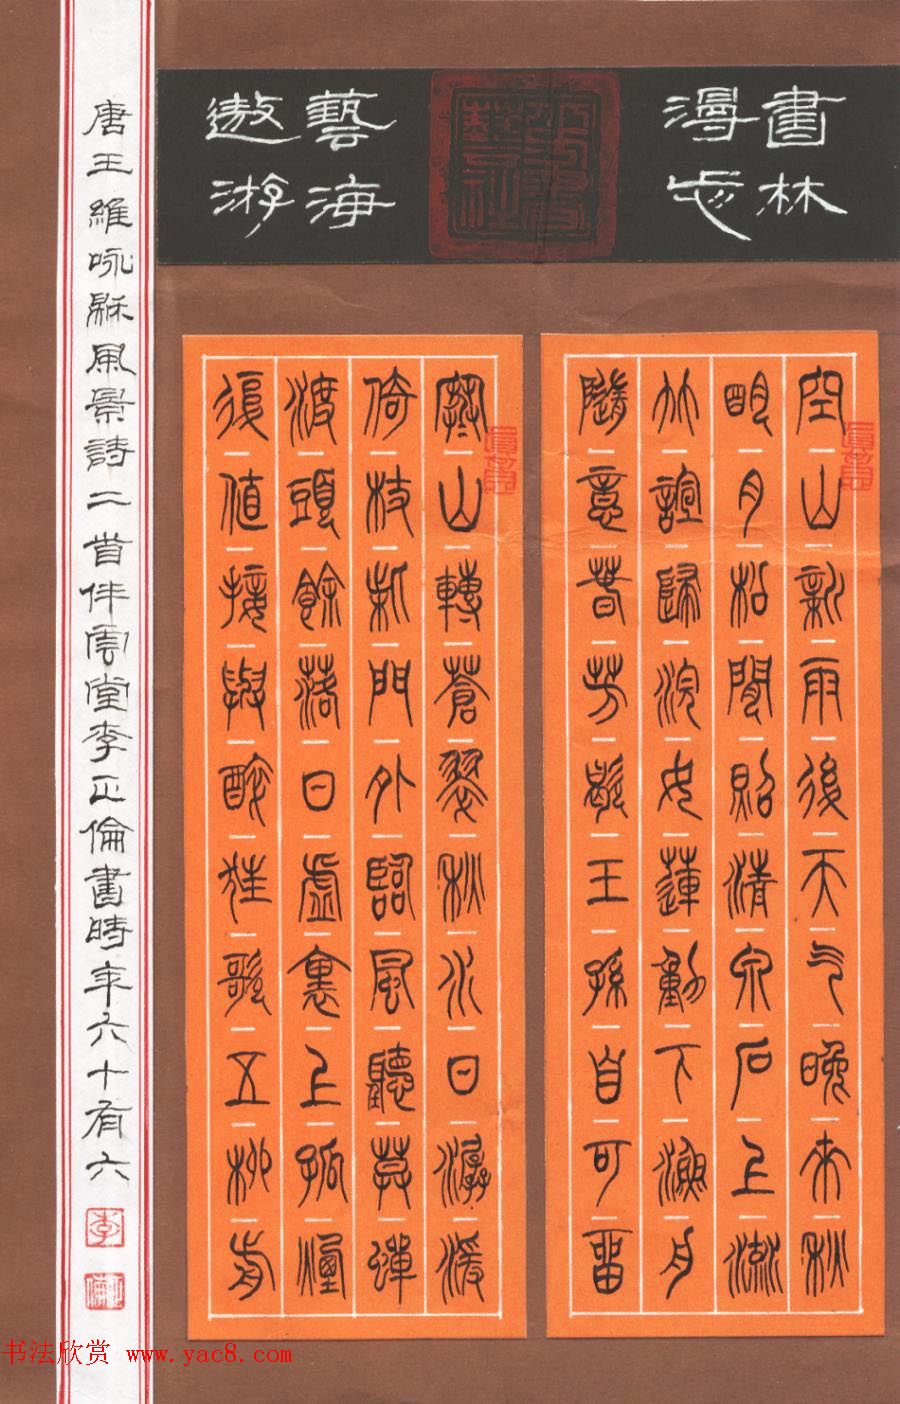 書林
漫步
藝海
遨游
空山新雨後天气晚來秋
明月松間照清泉石上流
竹諠歸浣女蓮動下漁舟
隨意春芳歇王孫自可畱
寒山轉蒼翠秋水日潺湲
倚杖柴門外臨風聽莫蟬
渡頭餘落日虛裏上孤煙
復值接輿醉狂歌五柳前
唐王維咏秋風景詩二首伴雲堂李正倫書時年六十有六
李
书法欣赏 www.yac8.com